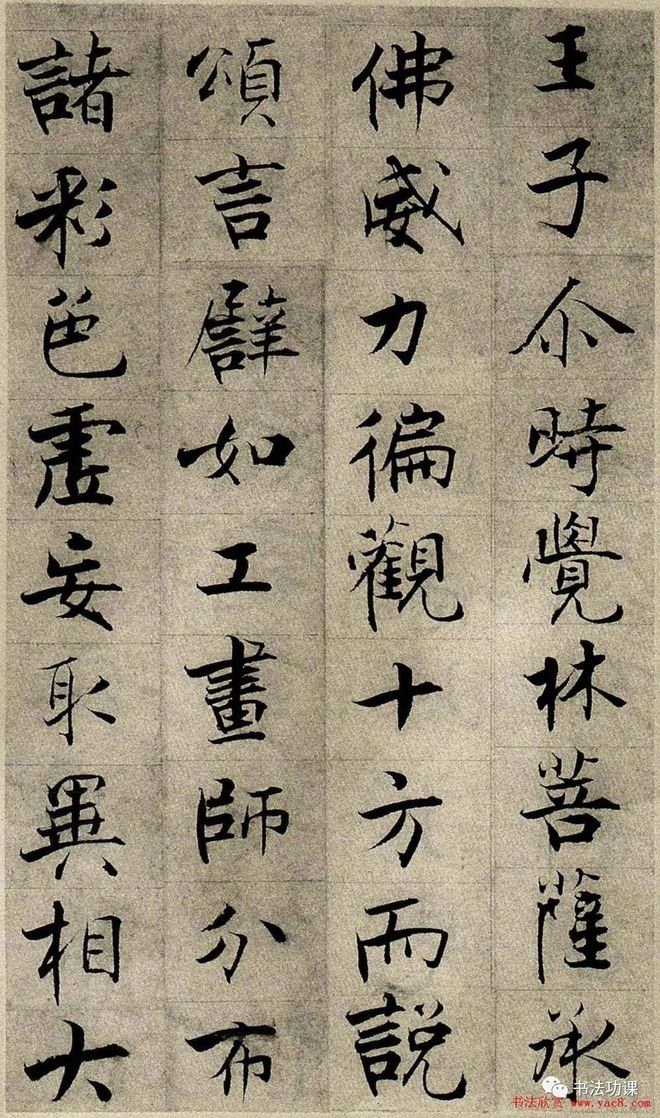 王子尒時覺林菩薩承
佛威力徧觀十方而説
頌言譬如工畫師分布
諸彩色虛妄取異相大
书法功课
书法欣赏 www.yac8.com